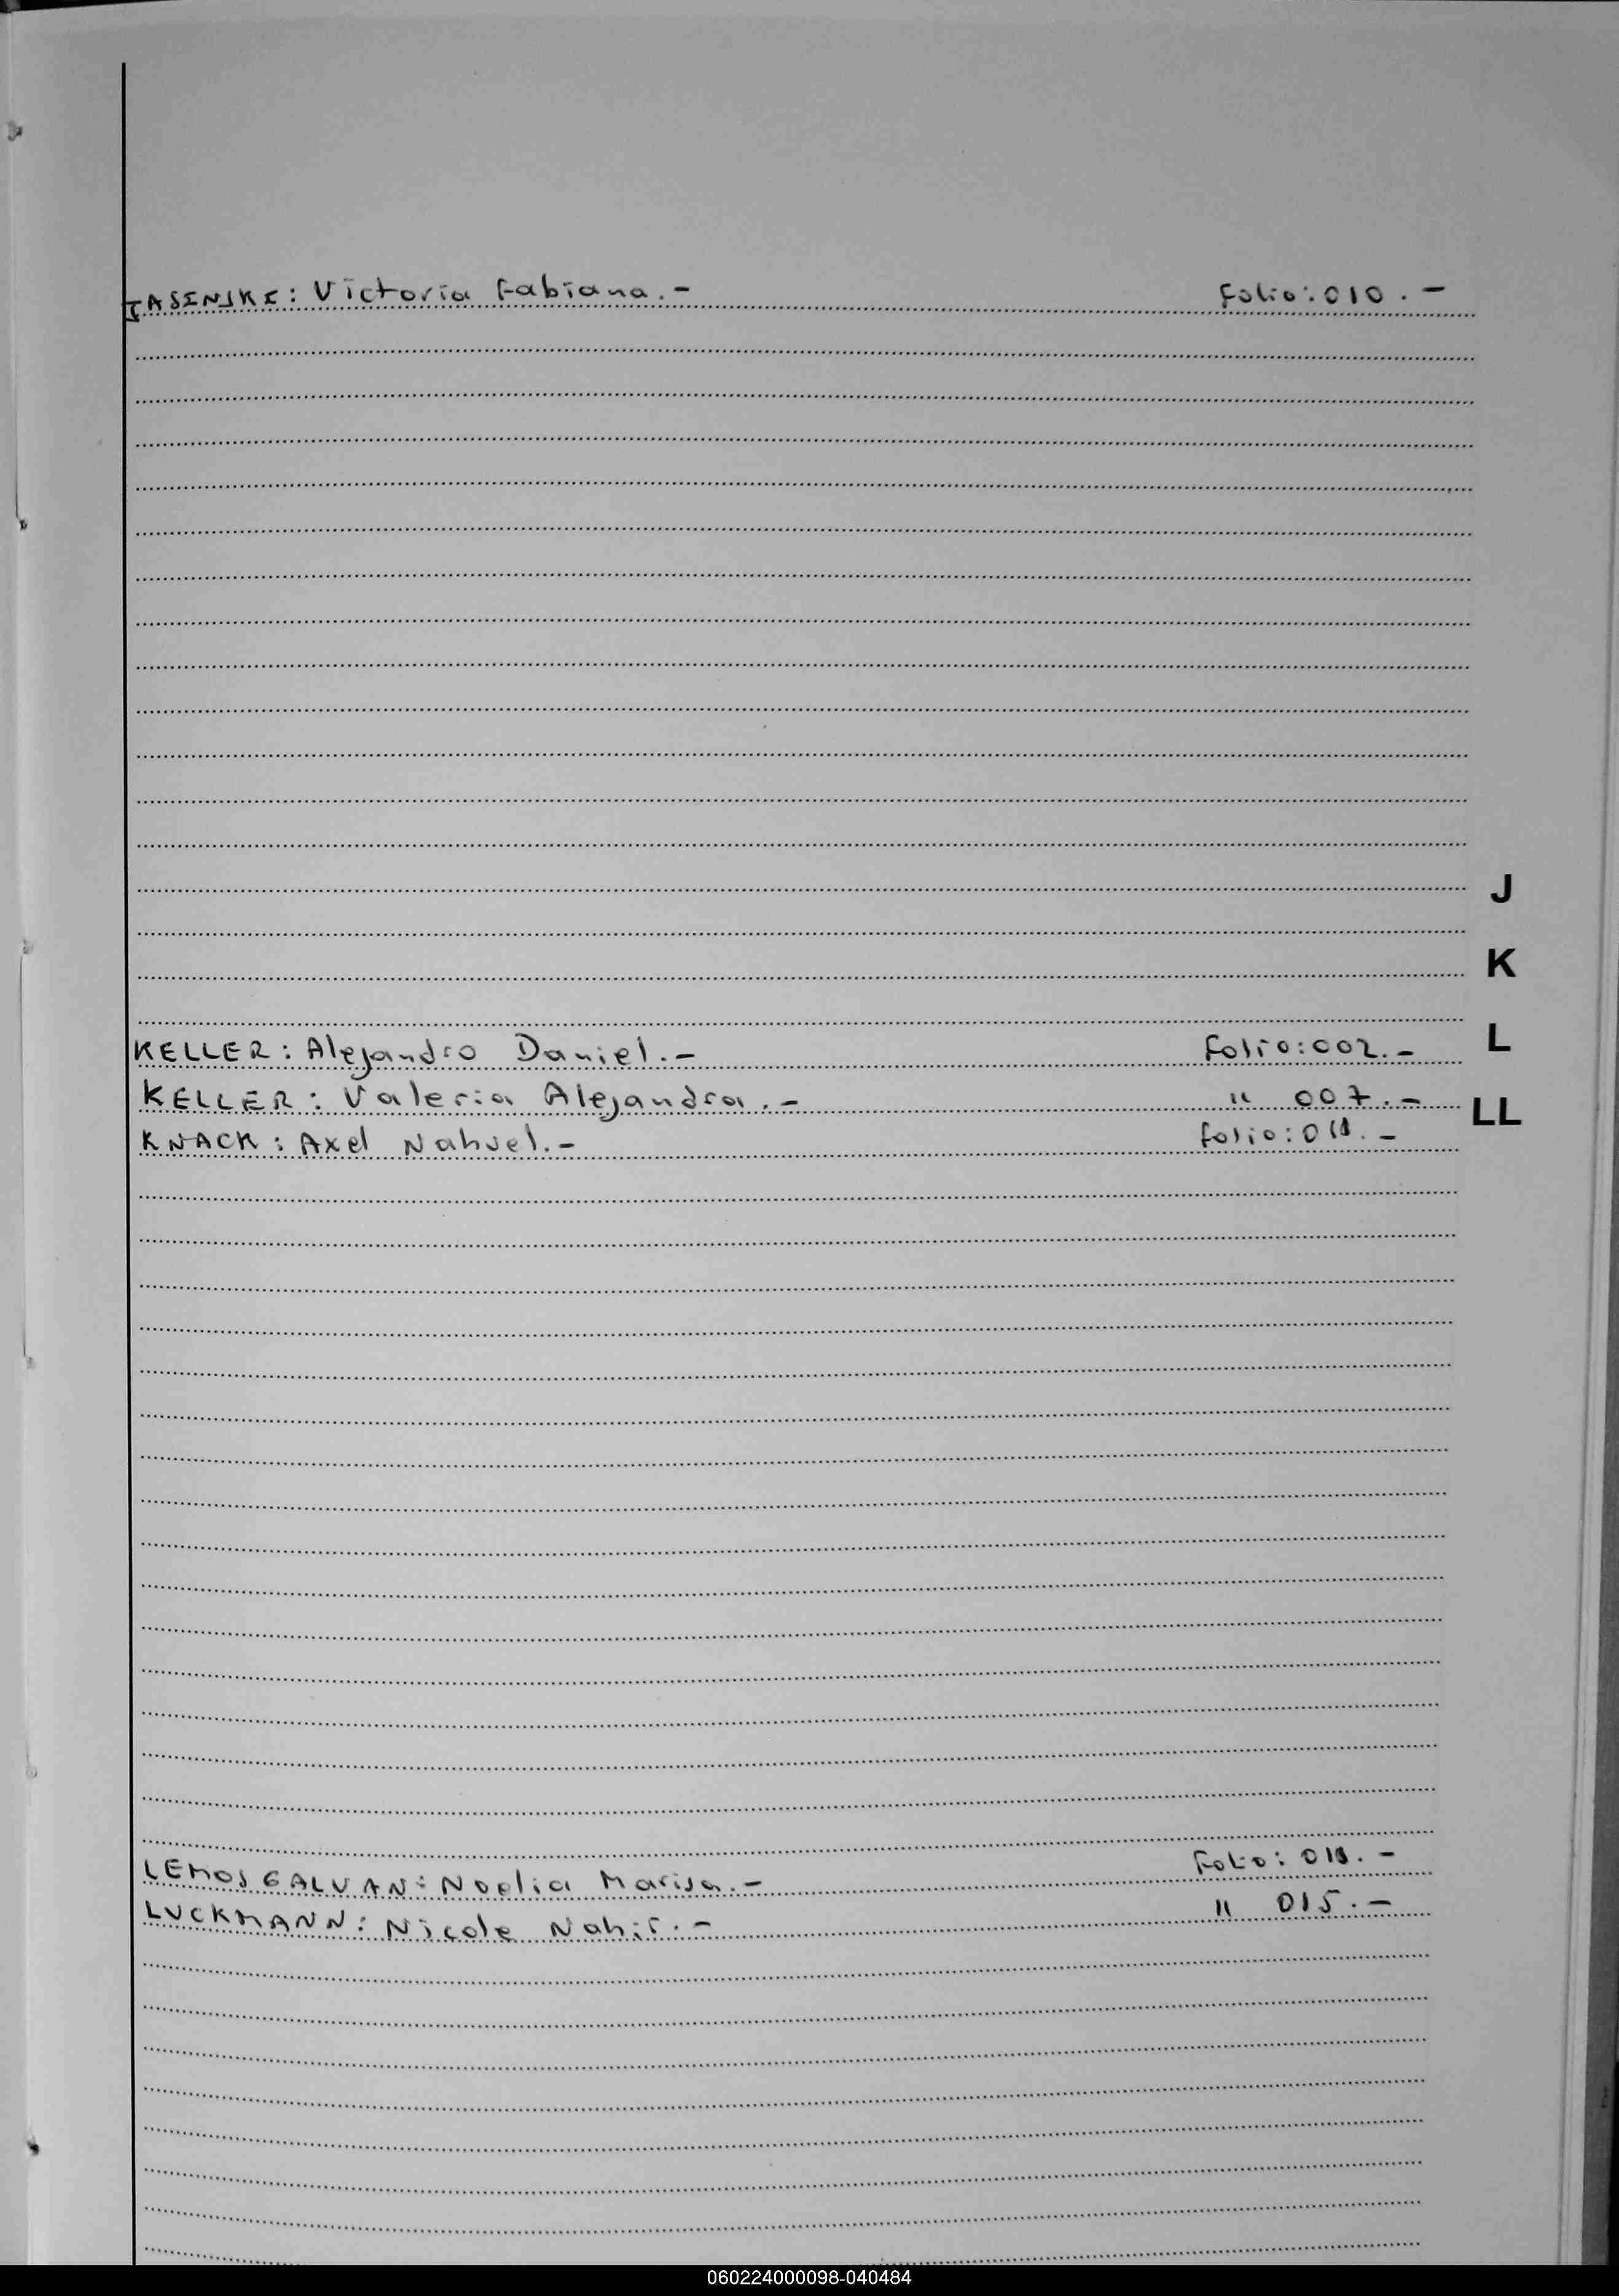 JASINSKI: Victoria Fabiana.- Folio: 010.-
J
K
L
KELLER: Alejandro Daniel.- Folio: 002.-
KELLER: Valeria Alejandra.- " 007.-
LL
KNACK: Axel Nahuel.- Folio:
LEMOS GALVAN: Noelia Marisa.- Folio:
LUCKMANN: Nicole Nahir.- " 015.-
060224000098-040484